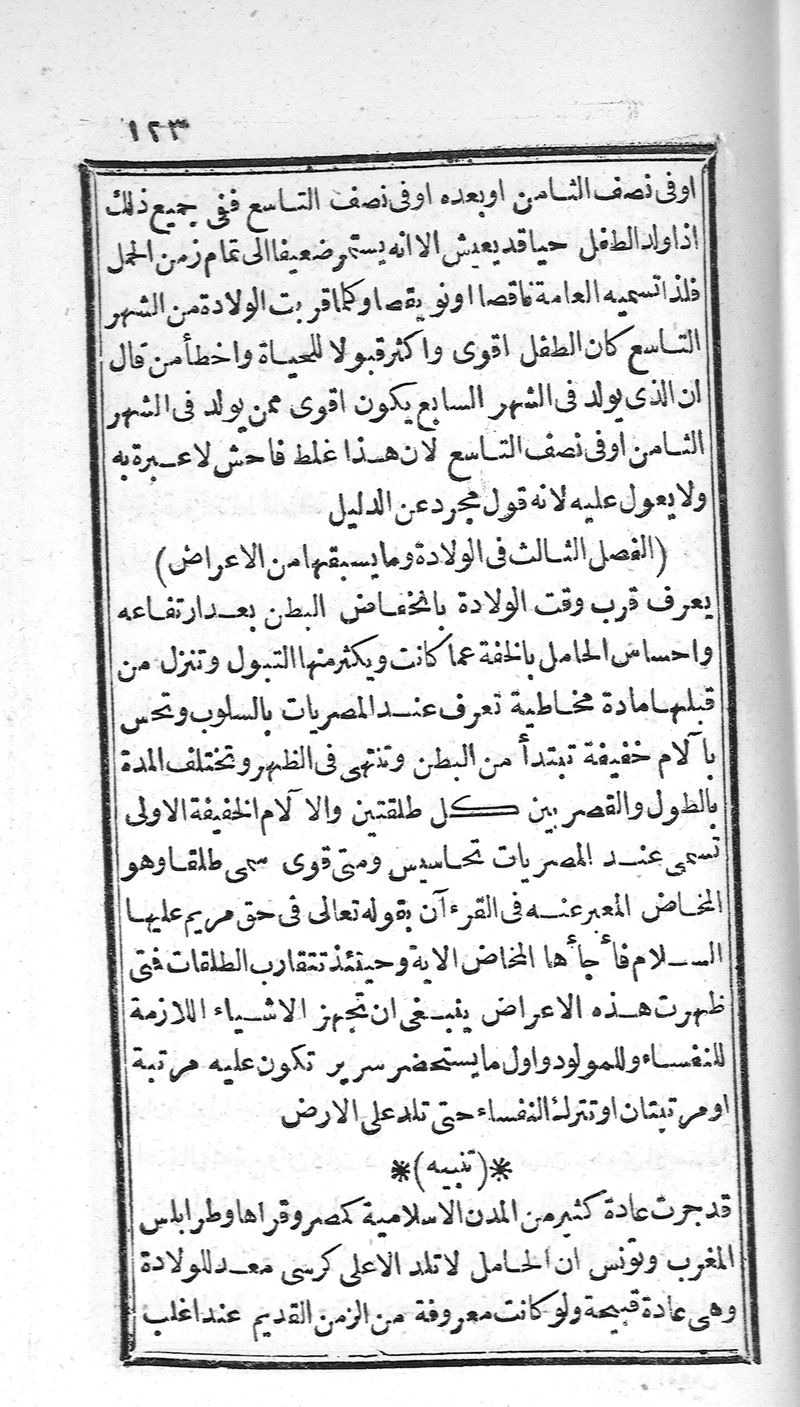 ١٢٣
اوفى نصف الثامن او بعده اوفى نصف التاسع ففى جميع ذلك
اذا ولد الطفل حيا قد يعيش الا انه يستمر ضعيفا الى تمام زمن الحمل
فلذا تسميه العامة ناقصا او نويقصا وكلما قربت الولادة من الشهر
التاسع كان الطفل اقوى واكثر قبولا للحياة واخطأ من قال
ان الذى يولد فى الشهر السابع يكون اقوى ممن يولد فى الشهر
الثامن اوفى نصف التاسع لان هذا غلط فاحش لا عبرة به
ولا يعول عليه لانه قول مجرد عن الدليل
(الفصل الثالث فى الولادة وما يسبقها من الاعراض)
يعرف قرب وقت الولادة بانخفاض البطن بعد ارتفاعه
واحساس الحامل بالخفة عما كانت ويكثر منها التبول وتنزل من
قبلها مادة مخاطية تعرف عند المصريات بالسلوب وتحس
بآلام خفيفة تبتدأ من البطن وتنتهى فى الظهر وتختلف المدة
بالطول والقصر بين كل طلقتين والا آلام الخفيفة الاولى
تسمى عند المصريات تحاسيس ومتى قوى سمى طلقا وهو
المخاض المعبر عنه فى القرءآن بقوله تعالى فى حق مريم عليها
السلام فأجأها المخاض الاية وحينئذ تتقارب الطلقات فتى
ظهرت هذه الاعراض ينبغى ان تجهز الاشياء اللازمة
للنفساء وللمولود واول ما يستحضر سرير تكون عليه مرتبة
او مرتبتان او تترك النفساء حتى تلد على الارض
*(تنبيه)*
قد جرت عادة كثير من المدن الاسلامية كمصر وقراها وطرابلس
المغرب وتونس ان الحامل لا تلد الا على كرسى معد للولادة
وهى عادة قبيحة ولو كانت معروفة من الزمن القديم عند اغلب